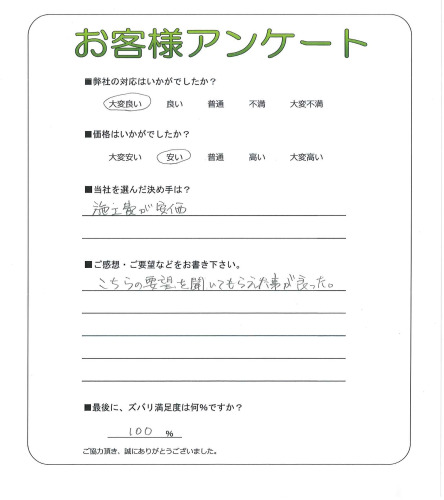 お客様アンケート
■弊社の対応はいかがでしたか？
大変良い 良い 普通 不満 大変不満
■価格はいかがでしたか？
大変安い 安い 普通 高い 大変高い
■当社を選んだ決め手は？
施工費が安価
■ご感想・ご要望などをお書き下さい。
こちらの要望を聞いてもらえた事が良った。
■最後に、ズバリ満足度は何％ですか？
100 %
ご協力頂き、誠にありがとうございました。